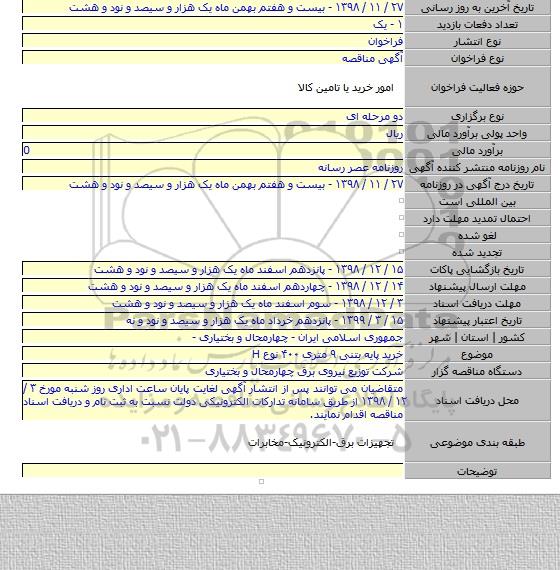 تاریخ آخرین به روز رسانی ۲۷ / ۱۱ / ۱۳۹۸ - بیست و هفتم بهمن ماه یک هزار و سیصد و نود و هشت
تعداد دفعات بازدید ۱ - یک
نوع انتشار فراخوان
نوع فراخوان آگهی مناقصه
حوزه فعالیت فراخوان امور خرید یا تامین کالا
نوع برگزاری دو مرحله ای
واحد پولی برآورد مالی ریال
برآورد مالی 0
نام روزنامه منتشر کننده آگهی روزنامه عصر رسانه
تاریخ درج آگهی در روزنامه ۲۷ / ۱۱ / ۱۳۹۸ - بیست و هفتم بهمن ماه یک هزار و سیصد و نود و هشت
بین المللی است
احتمال تمدید مهلت دارد
لغو شده
تجدید شده
تاریخ بازگشایی پاکات ۱۵ / ۱۲ / ۱۳۹۸ - پانزدهم اسفند ماه یک هزار و سیصد و نود و هشت
مهلت ارسال پیشنهاد ۱۴ / ۱۲ / ۱۳۹۸ - چهاردهم اسفند ماه یک هزار و سیصد و نود و هشت
مهلت دریافت اسناد ۳ / ۱۲ / ۱۳۹۸ - سوم اسفند ماه یک هزار و سیصد و نود و هشت
تاریخ اعتبار پیشنهاد ۱۵ / ۳ / ۱۳۹۹ - پانزدهم خرداد ماه یک هزار و سیصد و نود و نه
کشور | استان | شهر جمهوری اسلامی ایران - چهارمحال و بختیاری -
موضوع خرید پایه بتنی ۹ متری ۴۰۰ نوع H
دستگاه مناقصه گزار شرکت توزیع نیروی برق چهارمحال و بختیاری
محل دریافت اسناد متقاضیان می توانند پس از انتشار آگهی لغایت پایان ساعت اداری روز شنبه مورخ ۳ /
۱۲ / ۱۳۹۸ از طریق سامانه تدارکات الکترونیکی دولت نسبت به ثبت نام و دریافت اسناد
مناقصه اقدام نمایند.
طبقه بندی موضوعی تجهیزات برق-الکترونیک-مخابرات
توضیحات
۰۲۱-۸۸۳۴۹۶۷۰-۵